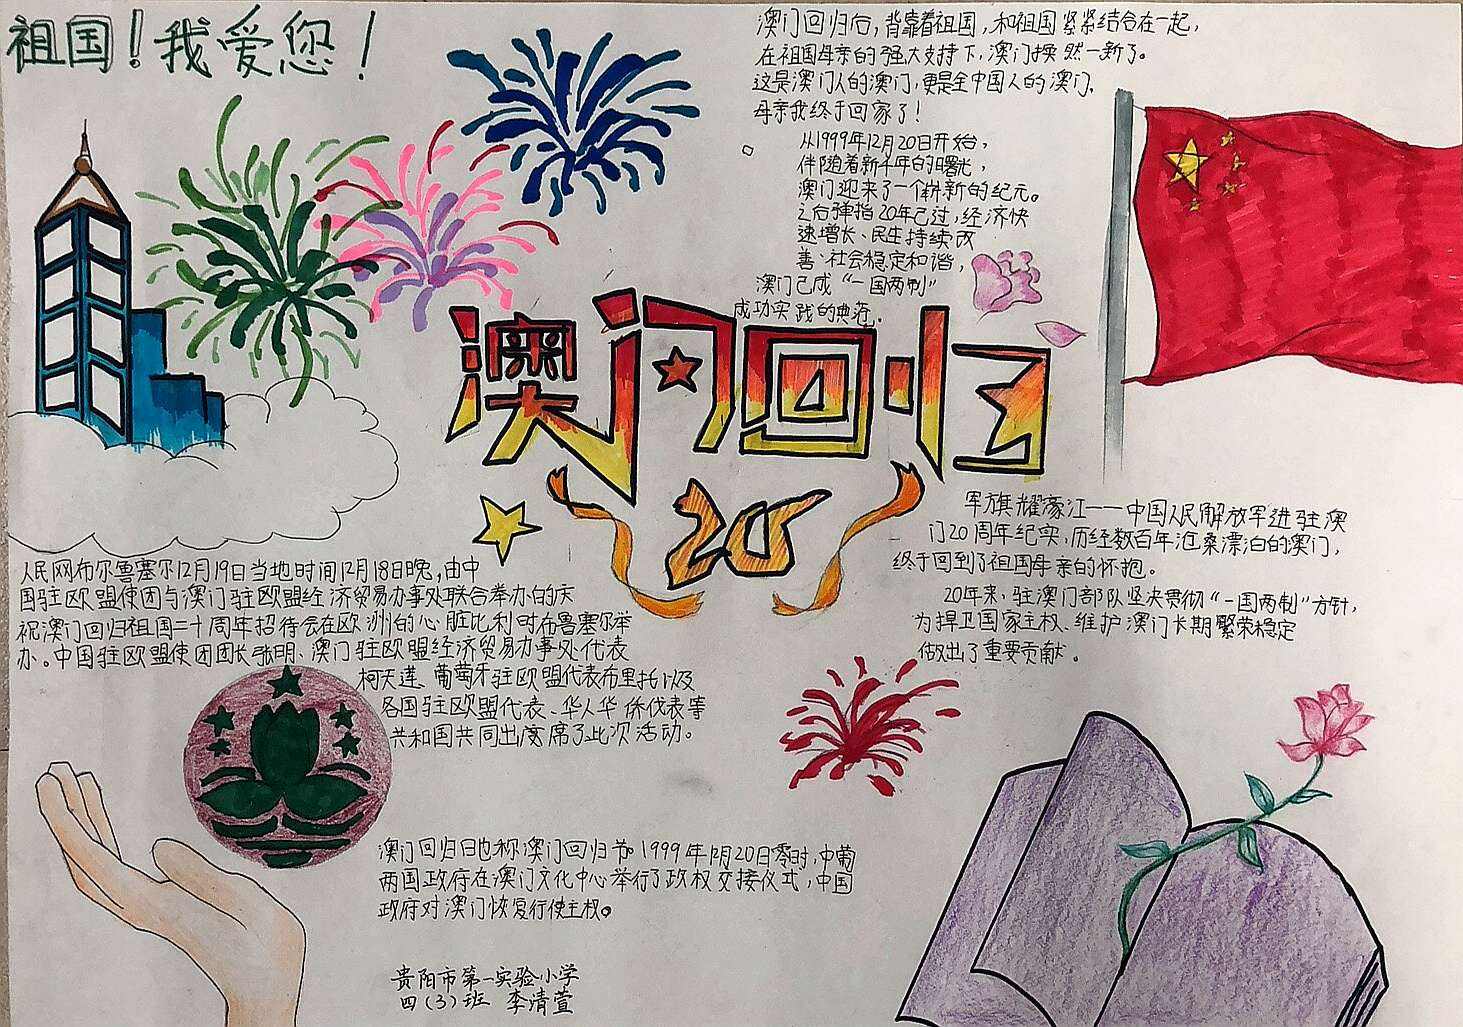 祖国！我爱您！
澳门回归后，背靠着祖国，和祖国紧紧结合在一起，
在祖国母亲的强大支持下，澳门换然一新了。
这是澳门人的澳门，更是全中国人的澳门，
母亲我终于回家了！
从1999年12月20日开始，
伴随着新千年的曙光，
澳门迎来了一个崭新的纪元。
之后弹指20年已过，经济快
速增长、民生持续改
善、社会稳定和谐，
澳门已成“一国两制”
成功实践的典范。
澳门回归
20
军旗耀濠江——中国人民解放军进驻澳
门20周年纪实，历经数百年沧桑漂泊的澳门，
终于回到了祖国母亲的怀抱。
20年来，驻澳门部队坚决贯彻“一国两制”方针，
为捍卫国家主权、维护澳门长期繁荣稳定
做出了重要贡献。
人民网布尔鲁塞尔12月19日当地时间12月18日晚，由中
国驻欧盟使团与澳门驻欧盟经济贸易办事处联合举办的庆
祝澳门回归祖国二十周年招待会在欧洲的心脏比利时布鲁塞尔举
办。中国驻欧盟使团团长张明、澳门驻欧盟经济贸易办事处代表
柯天莲、葡萄牙驻欧盟代表布里托以及
各国驻欧盟代表、华人华侨代表等
共和国共同出席了此次活动。
澳门回归日也称澳门回归节。1999年12月20日零时，中葡
两国政府在澳门文化中心举行了政权交接仪式，中国
政府对澳门恢复行使主权。
贵阳市第一实验小学
四（3）班 李清萱